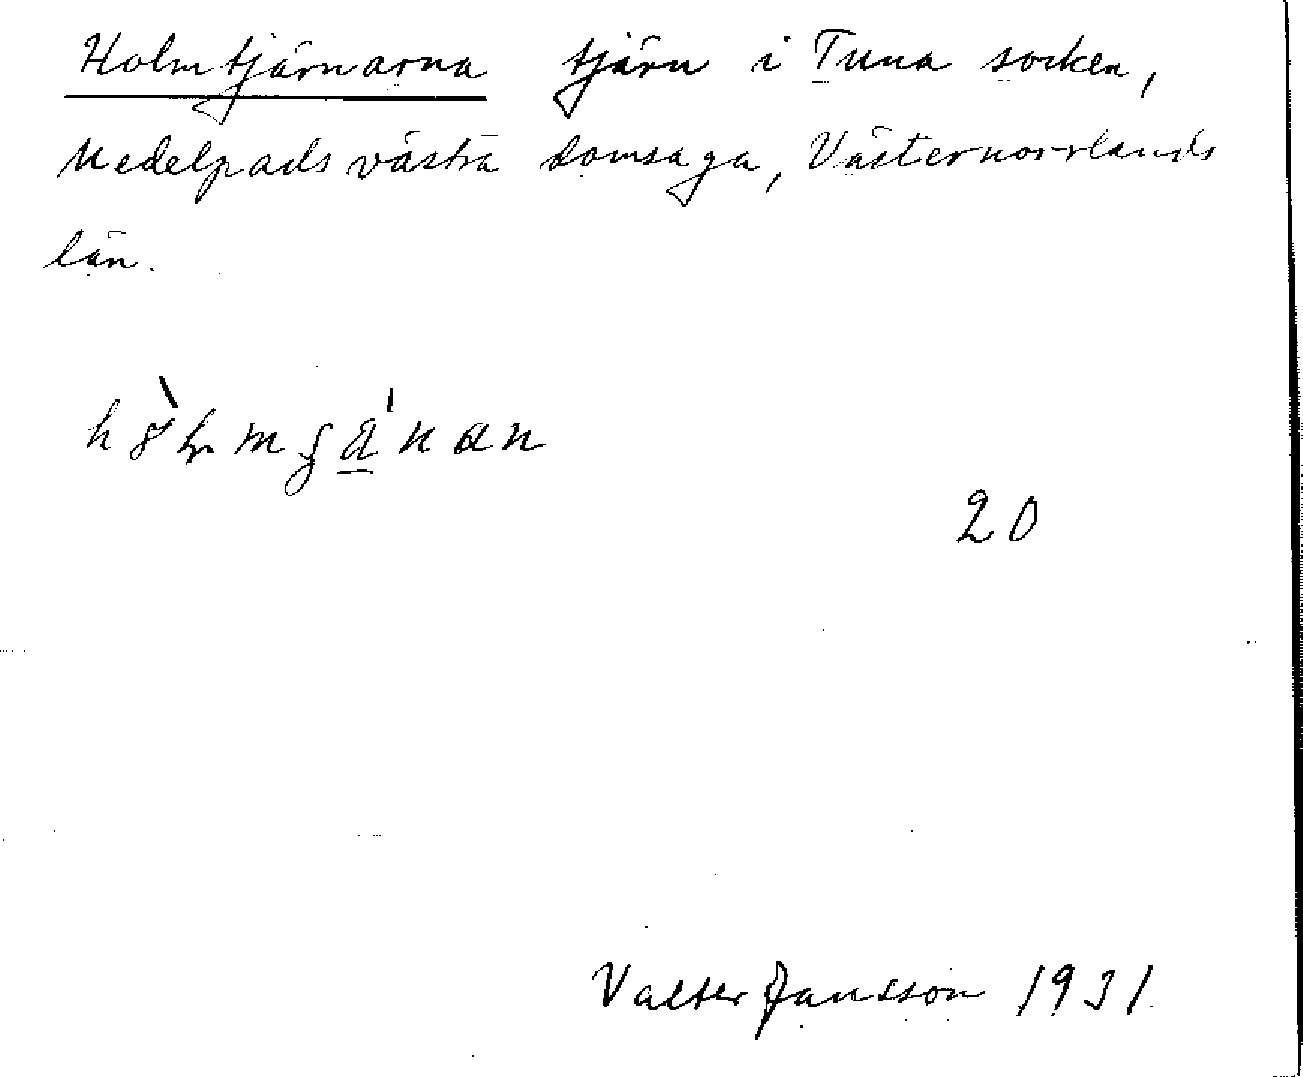 Holmtjärnarna tjärn i Tuna socken,
Medelpads västra domsaga, Västernorrlands
län.
20
Valter Jansson 1931